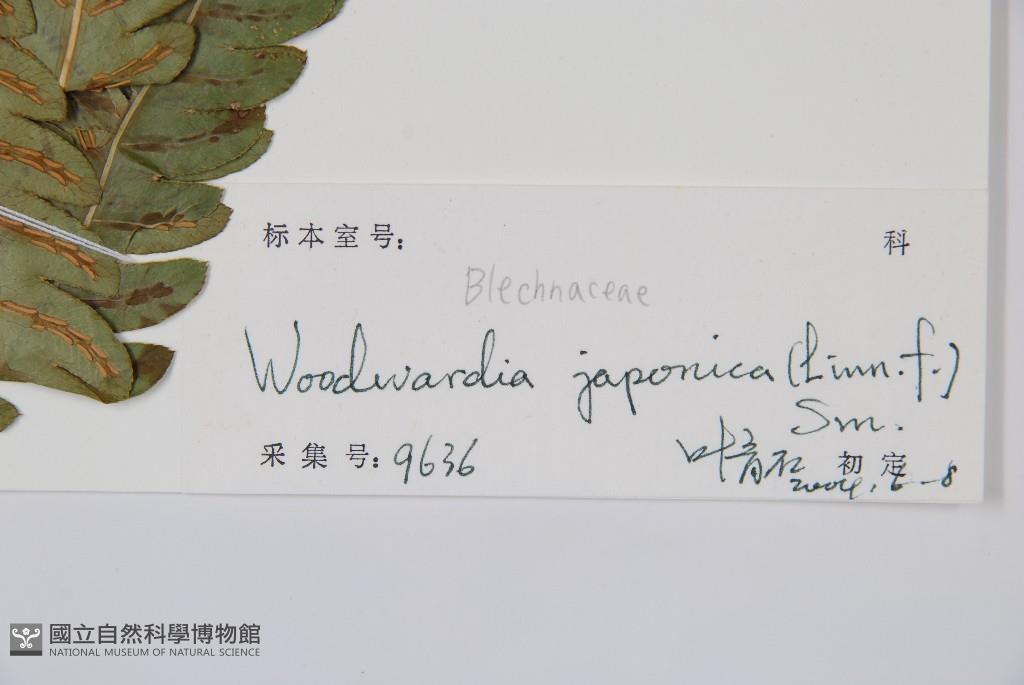 标本室号： 科
Blechnaceae
Woodwardia japonica (Linn. f.)
Sm.
采集号：9636 叶青石 初定
2004. 6-8
國立自然科學博物館
NATIONAL MUSEUM OF NATURAL SCIENCE